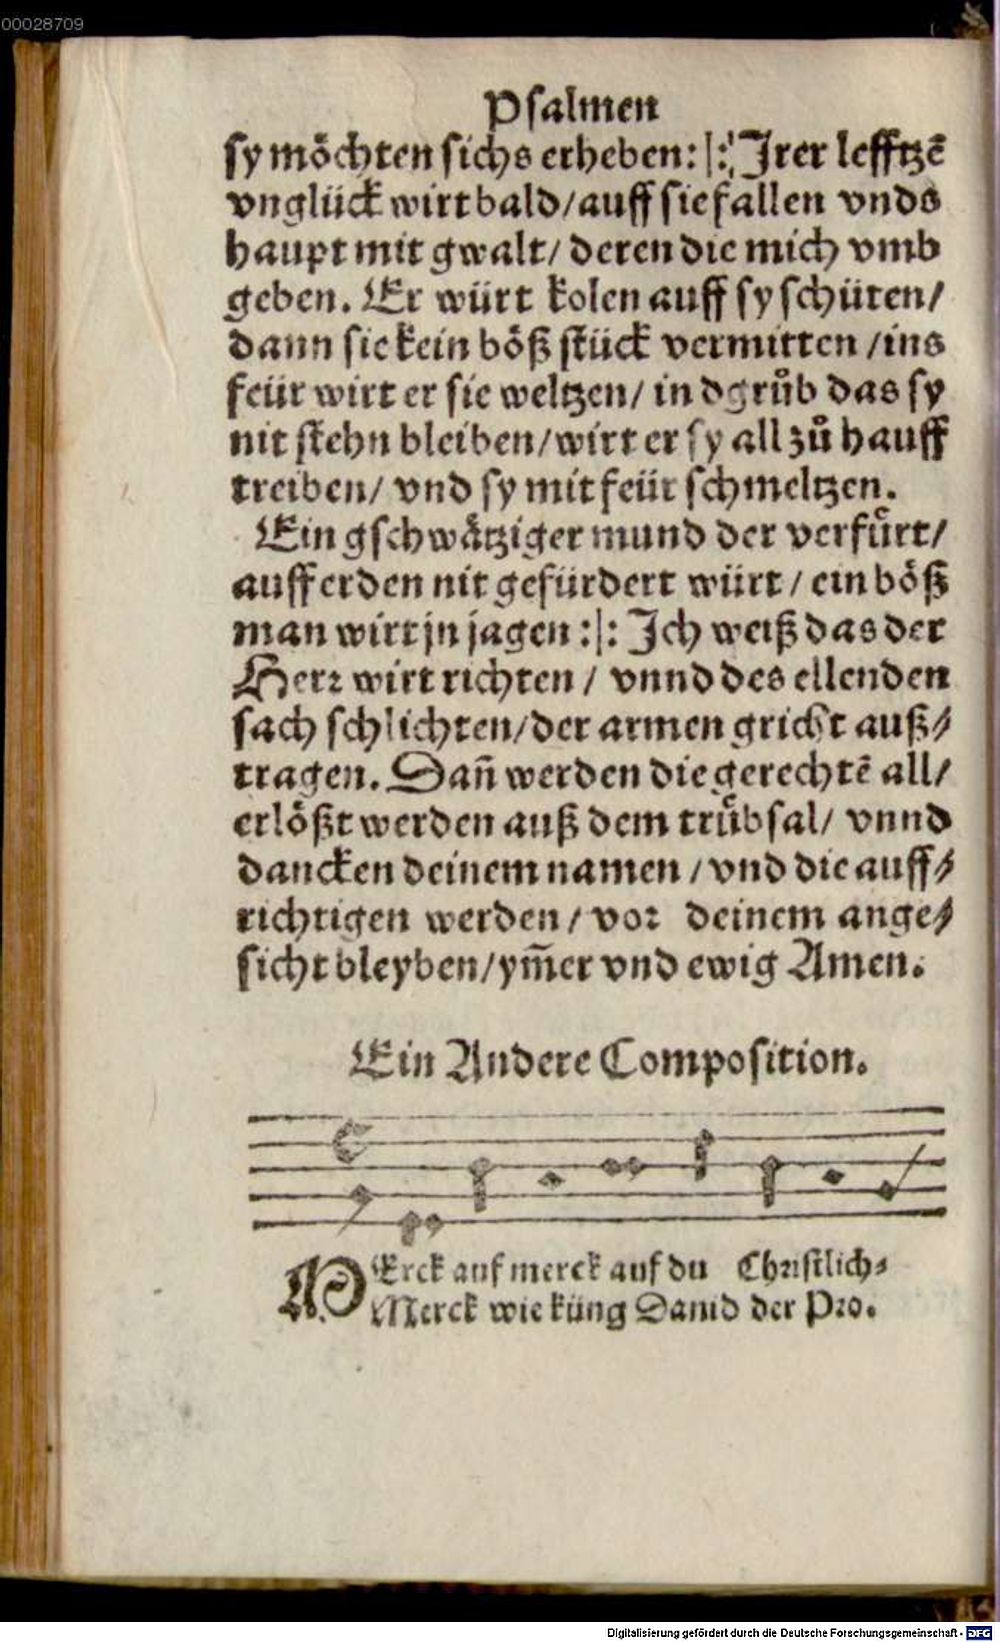 00028709
Psalmen
sy möchten sichs erheben: |: Jrer lefftzẽ
vnglück wirt bald/auff sie fallen vnds
haupt mit gwalt/ deren die mich vmb
geben. Er würt kolen auff sy schüten/
dann sie kein böß stück vermitten /ins
feür wirt er sie weltzen/ in dgrůb das sy
nit stehn bleiben/wirt er sy all zů hauff
treiben/ vnd sy mit feür schmeltzen.
Ein gschwätziger mund der verfürt/
auff erden nit gefürdert würt / ein böß
man wirt jn jagen :|: Jch weiß das der
Herr wirt richten / vnnd des ellenden
sach schlichten/der armen gricht auß⸗
tragen. Dañ werden die gerechtẽ all/
erlößt werden auß dem trübsal/ vnnd
dancken deinem namen /vnd die auff⸗
richtigen werden/ vor deinem ange⸗
sicht bleyben/ym̃er vnd ewig Amen.
Ein Andere Composition.
MErck auf merck auf du Christlich⸗
Merck wie küng Dauid der Pro.
Digitalisierung gefördert durch die Deutsche Forschungsgemeinschaft - DFG